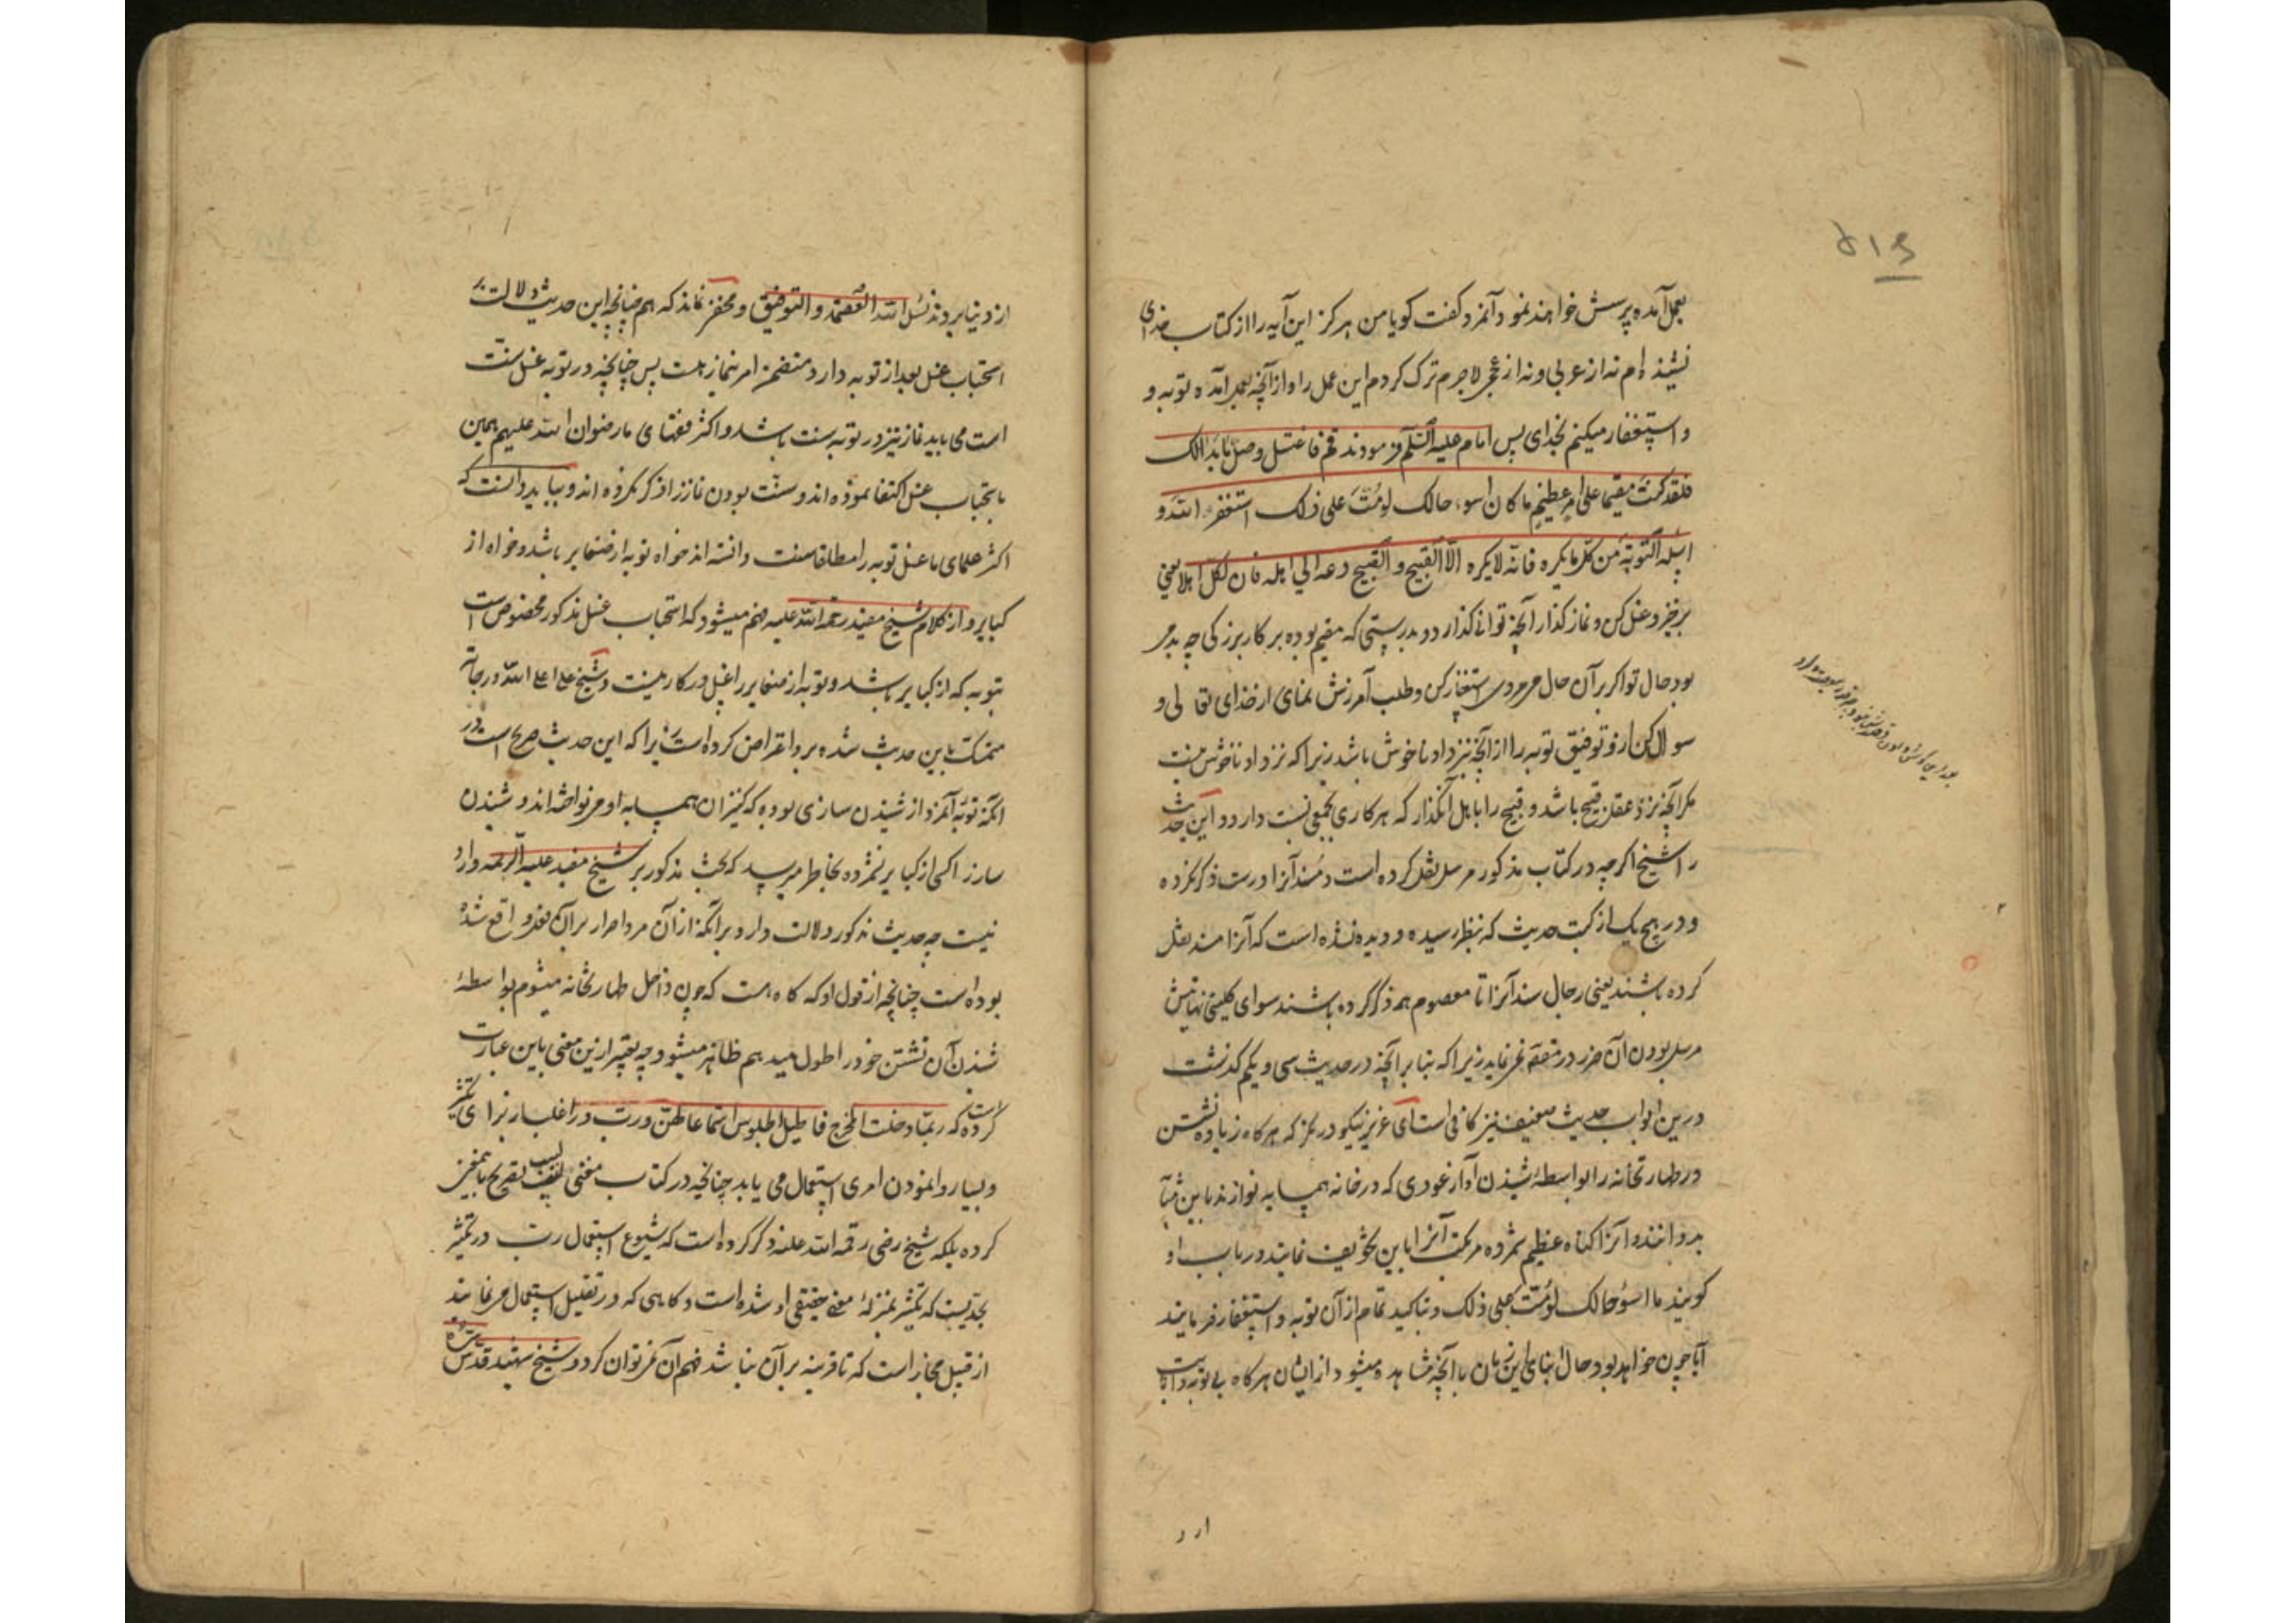 ۵۱۶
بعمل آمده پرسش خواهند نمود و آنمرد کفت کویا من هرکز این آیه را از کتاب خدای
نشینده ام نه از عربی و نه از عجمی لاجرم ترک کردم این عمل را و از آنچه بعمل آمده توبه و
و استغفار میکنم بخدای پس امام علیه السلم فرمودند قم فاغتسل وصل ما بدا لک
فلقد کنت مقیما علی امر عظیم ما کان اسوء حالک لو مُتّ علی ذلک استغفر الله و
اسله التوبة من کل ما یکره فانه لا یکره الا القبیح و القبیح دعه الی اهله فان لکل اهلا یعنی
برخیز و غسل کن و نماز کذار آنچه توانی کذارد و بدرستی که مقیم بوده بر کار بزرکی چه بد می
بود حال تو اکر بر آن حال می مردی استغفار کن و طلب آمرزش نمای از خدای تعالی و
سوال کن ازو توفیق توبه را از آنچه نزد او ناخوش باشد زیرا که نزد او ناخوش نیست
مکر آنچه نزد عقل قبیح باشد و قبیح را باهل آن کذار که هر کاری بجمعی نسبت دارد و این حدیث
را شیخ اکرچه در کتاب مذکور مرسل نقل کرده است و سند آنرا درست ذکر نکرده
و در هیچ یک از کتب حدیث که بنظر رسیده و دیده نشده است که آنرا مسند نقل
کرده باشند یعنی رجال سند آنرا تا معصوم همه ذکر کرده باشند سوای کلینی نهایتش
مرسل بودن آن ضرر در مقصد نمی نماید زیرا که بنا بر آنچه در حدیث سی و یکم کذشت
درین ابواب حدیث ضعیف نیز کافی است ای عزیز نیکو در نکر که هر کاه زیاده نشستن
در طهارتخانه را بواسطهٔ شنیدن آواز عودی که در خانه همسایه نوازند باین مثابه
بد دانند و آنرا کناه عظیم شمرده مرتکب آنرا باین تخویف نمایند و در باب او
کویند ما اسوء حالک لو مُتّ علی ذلک و بتاکید تمام از آن توبه و استغفار فرمایند
آیا چون خواهد بود حال ابنای این زمان با آنچه مشاهده میشود از ایشان هر کاه بی توبه و انابت
از د
از دنیا بروند نسئل الله العصمة و التوفیق و مخفی نماند که همچنانچه این حدیث دلالت بر
استحباب غسل بعد از توبه دارد متضمن امر بنماز هست پس چنانچه در توبه غسل سنت
است می باید نماز نیز در توبه سنت باشد و اکثر فقهای ما رضوان الله علیهم همین
باستحباب غسل اکتفا نموده اند و سنت بودن نماز را ذکر نکرده اند و بباید دانست که
اکثر علمای ما غسل توبه را مطلقا سنت دانسته اند خواه توبه از صغایر باشد و خواه از
کبایر و از کلام شیخ مفید رحمه الله علیه فهم میشود که استحباب غسل مذکور مخصوص است
بتوبه که از کبایر باشد و توبه از صغایر را غسل در کار نیست و شیخ علی اعلی الله درجاته
متمسک باین حدیث شده برو اعتراض کرده است زیرا که این حدیث صریح است در
آنکه توبه آنمرد از شنیدن سازی بوده که کنیزان همسایه او می نواخته اند و شنیدن
ساز را کسی از کبایر نشمرده بخاطر میرسد که بحث مذکور بر شیخ مفید علیه الرحمه وارد
نیست چه حدیث مذکور دلالت دارد بر آنکه از آن مرد اصرار بر آن فعل واقع شده
بوده است چنانچه از قول او که کاه هست که چون داخل طهارتخانه میشوم بواسطهٔ
شنیدن آن نشستن خود را طول میدهم ظاهر میشود چه تعبیر ازین معنی باین عبارت
کرده است که ربما دخلت المخرج فاطیل الجلوس استماعا لهن و رب در اغلب از برای تکثیر
و بسیار وانمودن امری استعمال می یابد چنانچه در کتاب مغنی اللبیب تصریح باین
کرده بلکه شیخ رضی رحمه الله علیه ذکر کرده است که شیوع استعمال رب در تکثیر
بحدیست که تکثیر بمنزلهٔ معنی حقیقی او شده است و کاهی که در تقلیل استعمال می نمایند
از قبیل مجاز است که تا قرینه بر آن نباشد فهم آن نمی توان کرد و شیخ شهید قدس سره